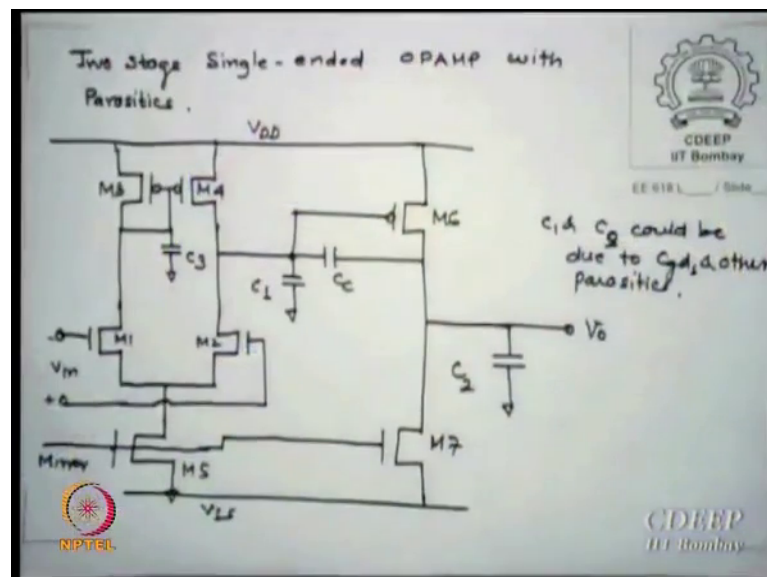 Two stage Single-ended OPAMP with
Parasitics.
VDD
CDEEP
IIT Bombay
EE 618 L___ / Slide___
M3
M4
M6
C3
C1
CC
C1 & C2 could be
due to Cgd, & other
Parasitics.
M1
M2
Vin
Vo
C2
M7
Mirror
M5
VSS
NPTEL
CDEEP
IIT Bombay